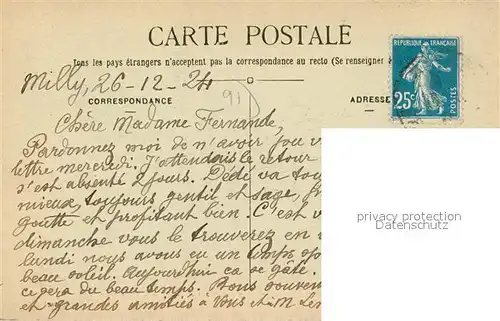 CARTE POSTALE
Tous les pays étrangers n'acceptent pas la correspondance au recto (Se renseigner à
RÉPUBLIQUE FRANÇAISE
25c
POSTES
Milly, 26-12-24
91
CORRESPONDANCE
ADRESSE
Chère Madame Fernande,
Pardonnez moi de n'avoir
lettre mercredi. J'attendais le retour
s'est absenté 2 jours. Dédé va
mieux, toujours gentil et sage,
goutte et profitant bien. C'est
dimanche vous le trouverez en
lundi nous avons eu un temps
beau soleil. Aujourd'hui ça se gâte.
ce sera du beau temps. Bons
et grandes amitiés à Vous et M
privacy protection
Datenschutz